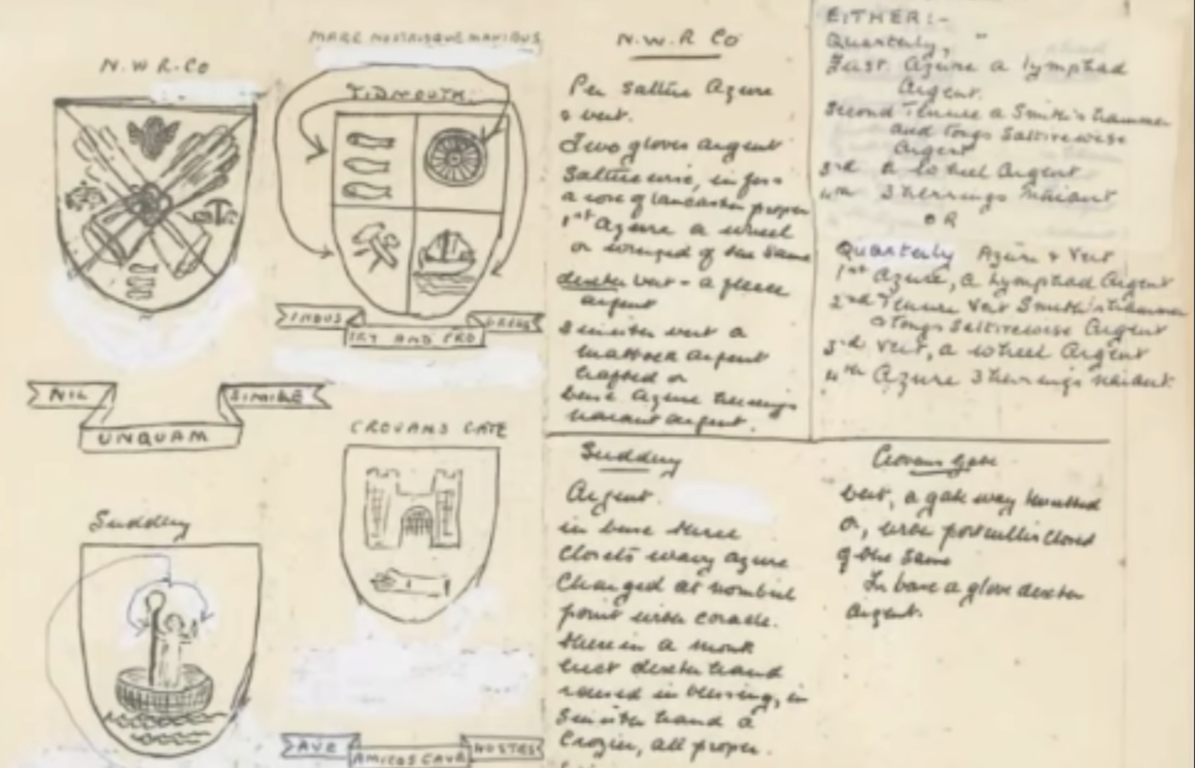 N.W.R.Co
NIL
UNQUAM
SIMILE
MARE NOSTRISQUE MANIBUS
TIDMOUTH
INDUS
TRY AND PRO
GRESS
Suddery
CROVANS GATE
AVE
AMICOS CAVE
HOSTES
N.W.R Co
Per Saltire Azure
& vert.
Two gloves argent
Saltirewise, in fess
a rose of Lancaster proper
1st Azure a wheel
or winged of the same
dexter vert - a fleece
argent
Sinister vert a
mattock argent
hafted or
base Azure herrings
naiant argent.
EITHER:-
Quarterly,
First Azure a lymphad
Argent.
Second a Smith's hammer
and tongs Saltirewise
Argent
3rd A wheel Argent
4th 3 herrings Naiant
OR
Quarterly Azure & Vert
1st Azure, a Lymphad Argent
2nd Vert Smith's hammer
& tongs Saltirewise Argent
3rd Vert, a wheel Argent
4th Azure 3 herrings naiant
Suddery
Argent.
in base three
closets wavy azure
Charged at nombril
point with coracle.
therein a monk
dexter hand
raised in blessing, in
Sinister hand a
Crozier, all proper.
Crovans Gate
Vert, a gateway
or, with portcullis closed
of the same
In base a glove dexter
argent.